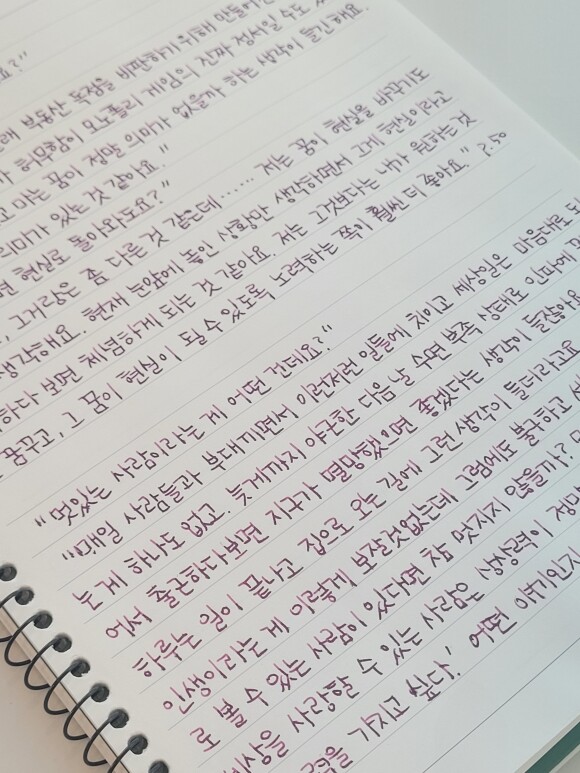 요?"
부동산 독점을 비판하기 위해 만들어
허무함이 모노폴리 게임의 진짜 정서일 수도
고 마는 꿈이 정말 의미가 없을까 하는 생각이 들긴 해요.
리마가 있는 것 같아요."
현실로 돌아와도요?"
그거랑은 좀 다른 것 같은데…… 저는 꿈이 현실을 바꾸기도
생각해요. 현재 눈앞에 놓인 상황만 생각하면서 그게 현실이라고
하다 보면 체념하게 되는 것 같아요. 저는 그것보다는 내가 원하는 것
꿈꾸고, 그 꿈이 현실이 될 수 있도록 노력하는 쪽이 훨씬 더 좋아요." p.50
"멋있는 사람이라는 게 어떤 건데요?"
"매일 사람들과 부대끼면서 이런저런 일들에 치이고 세상일은 마음대로 되
는 게 하나도 없고. 늦게까지 야근한 다음날 수면 부족 상태로 인파에
어서 출근하다보면 지구가 멸망했으면 좋겠다는 생각이 들잖아요
하루는 일이 끝나고 집으로 오는 길에 그런 생각이 들더라고요
인생이라는 게 이렇게 보잘것없는데 그럼에도 불구하고
로 볼 수 있는 사람이 있다면 참 멋지지 않을까?
세상을 사랑할 수 있는 사람은 상상력이 정말
가지고 싶다.' 어떤 이야기인지